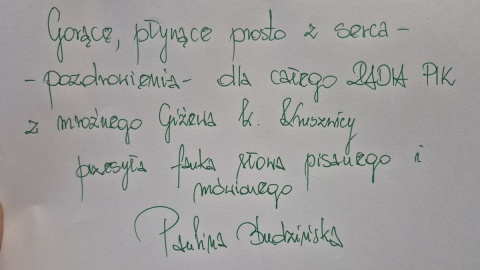 Gorące, płynące prosto z serca -
- pozdrowienia - dla całego RADIA PIK
z mroźnego Giżewa k. Kruszwicy
przesyła fanka słowa pisanego i
mówionego
Paulina Budzińska